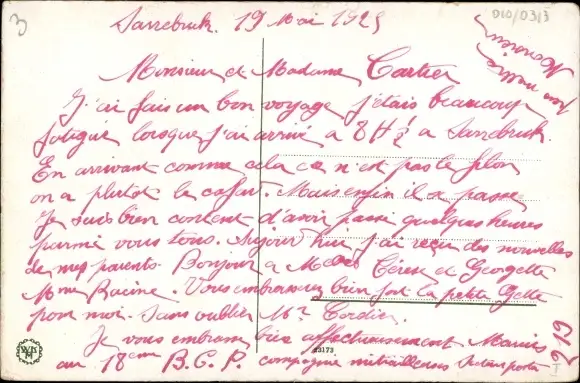 3
D10/0313
Sarrebruck. 19 Mai 1925
Monsieur et Madame Cartier
J'ai fais un bon voyage j'étais beaucoup
fatigué lorsque j'ai arrivé a 8H½ a Sarrebruck.
En arrivant comme cela ce n'est pas le filon
on a plutôt le cafar. Mais enfin il a passé
Je suis bien content d'avoir passé quelques heures
parmé vous tous. Aujour'hui j'ai reçu des nouvelles
de mes parents. Bonjour a Mlles Térese et Georgette
Mme Racine. Vous embrasserer bien fort la petite Gette
pour moi. Sans oublier Mr Cordier.
Je vous embrasse bien affectueusement Marius
au 18eme B.C.P. compagnie mitrailleuses Secteur postal
219
13173